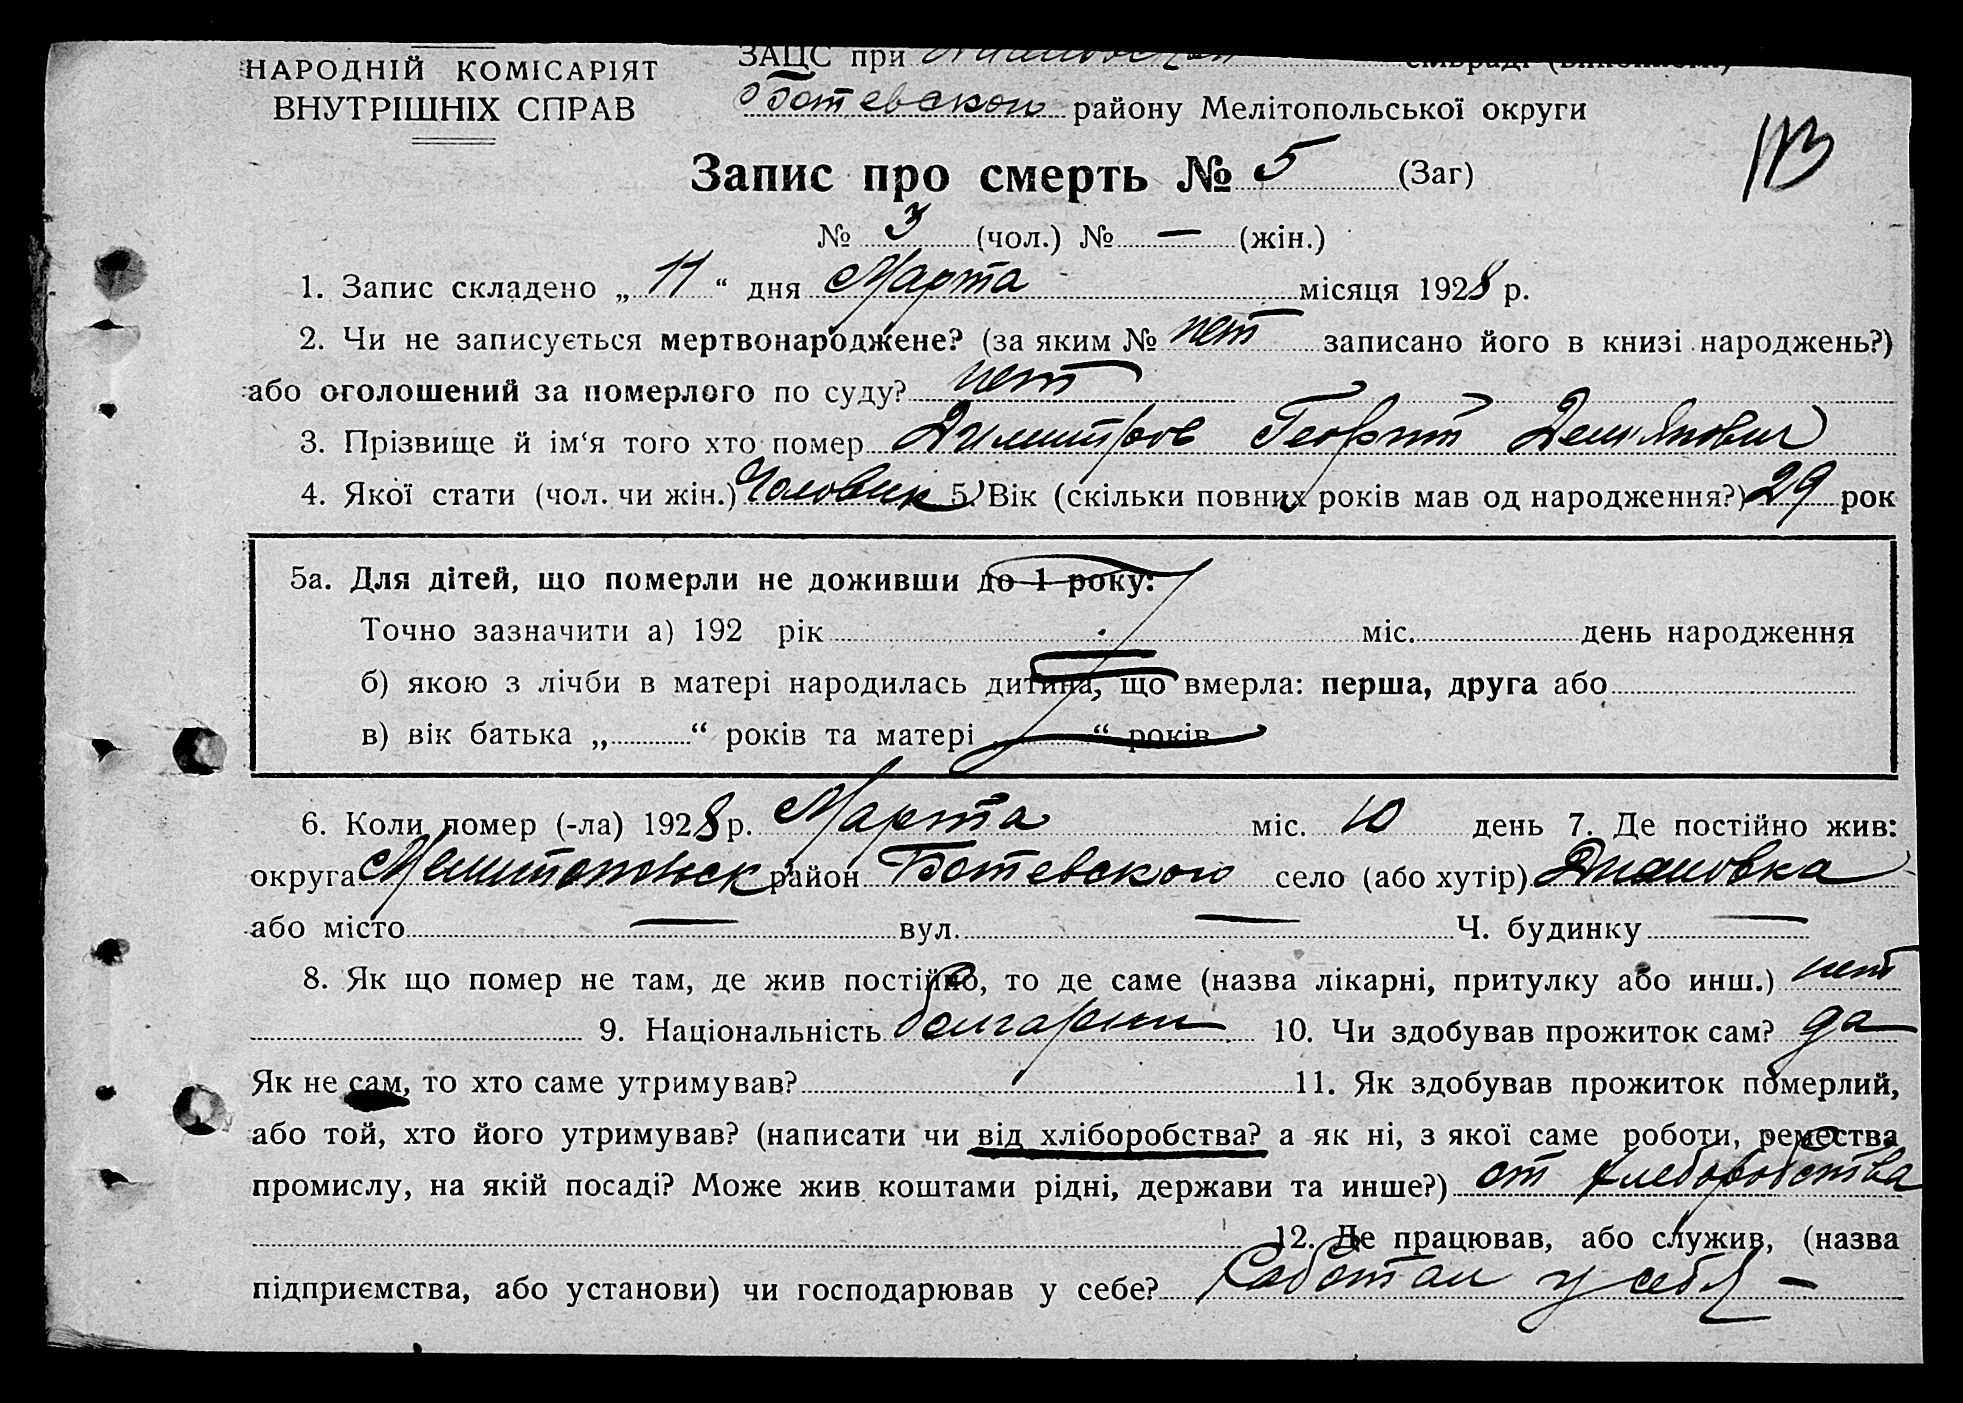 НАРОДНІЙ КОМІСАРІЯТ
ВНУТРІШНІХ СПРАВ
ЗАЦС при
Ботевского району Мелітопольської округи
113
Запис про смерть № 5 (Заг)
№ 3 (чол.) № — (жін.)
1. Запис складено „ 11 “ дня Марта місяця 1928 р.
2. Чи не записується мертвонароджене? (за яким № нет записано його в книзі народжень?)
або оголошений за померлого по суду? нет
3. Прізвище й ім‘я того хто помер Димитров Георгий Демьянович
4. Якої стати (чол. чи жін.) Чоловик 5. Вік (скільки повних років мав од народження?) 29 рок
5а. Для дітей, що померли не доживши до 1 року:
Точно зазначити а) 192 рік міс. день народження
б) якою з лічби в матері народилась дитина, що вмерла: перша, друга або
в) вік батька „ “ років та матері „ “ років
6. Коли помер (-ла) 1928 р. Марта міс. 10 день 7. Де постійно жив:
округа Мелитопольск район Ботевского село (або хутір) Диановка
або місто — вул. — Ч. будинку —
8. Як що помер не там, де жив постійно, то де саме (назва лікарні, притулку або инш.) нет
9. Національність болгарин 10. Чи здобував прожиток сам? да
Як не сам, то хто саме утримував? 11. Як здобував прожиток померлий,
або той, хто його утримував? (написати чи від хліборобства? а як ні, з якої саме роботи, ремества
промислу, на якій посаді? Може жив коштами рідні, держави та инше?) от хлеборобства
12. Де працював, або служив, (назва
підприємства, або установи) чи господарював у себе? Работал у себя —